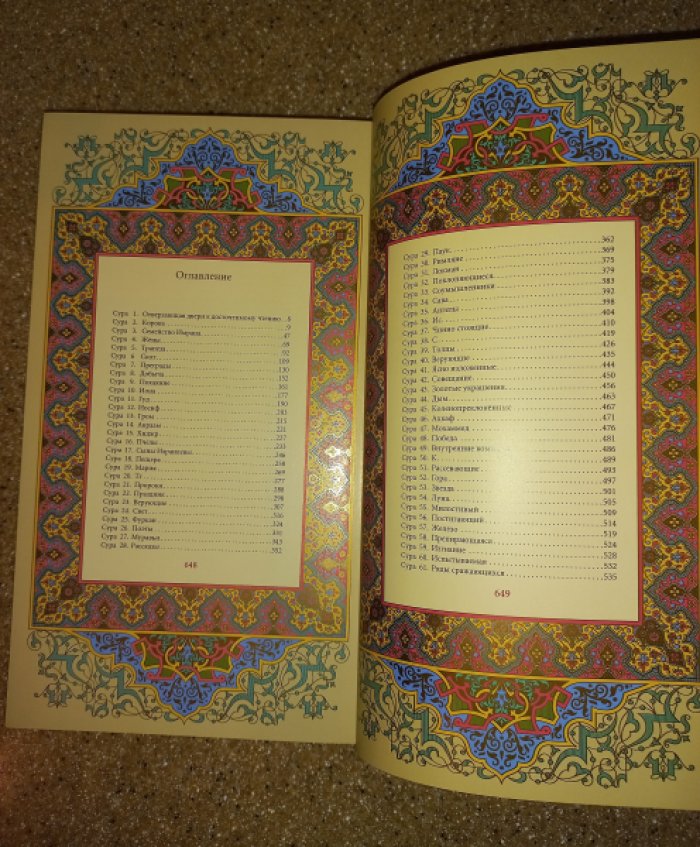 Оглавление
Сура 1. Отверзающая двери к досточтимому чтению ..5
Сура 2. Корова 9
Сура 3. Семейство Имрана 47
Сура 4. Жены 69
Сура 5. Трапеза 92
Сура 6. Скот 109
Сура 7. Преграды 130
Сура 8. Добыча 152
Сура 9. Покаяние 161
Сура 10. Иона 177
Сура 11. Гуд 190
Сура 12. Иосиф 203
Сура 13. Гром 215
Сура 14. Авраам 221
Сура 15. Хиджр 227
Сура 16. Пчелы 233
Сура 17. Сыны Израилевы 246
Сура 18. Пещера 258
Сура 19. Мария 269
Сура 20. Тг 277
Сура 21. Пророки 288
Сура 22. Праздник 298
Сура 23. Верующие 307
Сура 24. Свет 316
Сура 25. Фуркан 324
Сура 26. Поэты 331
Сура 27. Муравьи 343
Сура 28. Рассказы 352
648
Сура 29. Паук 362
Сура 30. Римляне 369
Сура 31. Локман 375
Сура 32. Поклоняющиеся 379
Сура 33. Соумышленники 383
Сура 34. Сава 392
Сура 35. Ангелы 398
Сура 36. Ис 404
Сура 37. Чинно стоящие 410
Сура 38. С 419
Сура 39. Толпы 426
Сура 40. Верующий 435
Сура 41. Ясно изложенные 444
Сура 42. Совещание 450
Сура 43. Золотые украшения 456
Сура 44. Дым 463
Сура 45. Коленопреклоненные 467
Сура 46. Ахкаф 471
Сура 47. Мохаммед 477
Сура 48. Победа 481
Сура 49. Внутренние 486
Сура 50. К 489
Сура 51. Рассевающие 493
Сура 52. Гора 497
Сура 53. Звезда 501
Сура 54. Луна 505
Сура 55. Милостивый 509
Сура 56. Постигающий 514
Сура 57. Железо 519
Сура 58. Препирающаяся 524
Сура 59. Изгнание 528
Сура 60. Испытываемая 532
Сура 61. Ряды сражающихся 535
649